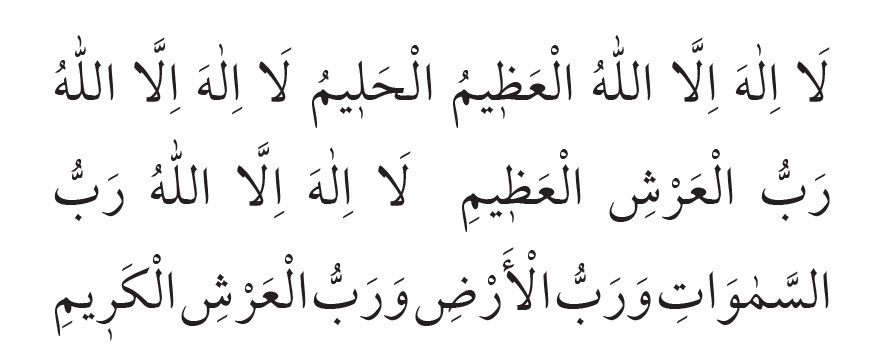 لَا اِلٰهَ اِلَّا اللّٰهُ الْعَظٖيمُ الْحَلٖيمُ لَا اِلٰهَ اِلَّا اللّٰهُ
رَبُّ الْعَرْشِ الْعَظٖيمِ لَا اِلٰهَ اِلَّا اللّٰهُ رَبُّ
السَّمٰوَاتِ وَرَبُّ الْأَرْضِ وَرَبُّ الْعَرْشِ الْكَرٖيمِ